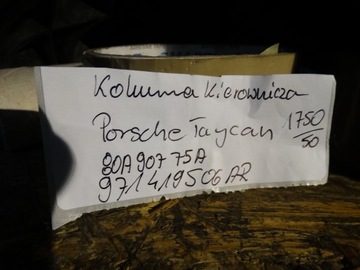 Kolumna Kierownicza
Porsche Taycan 1750/50
80A90775A
971419506AR